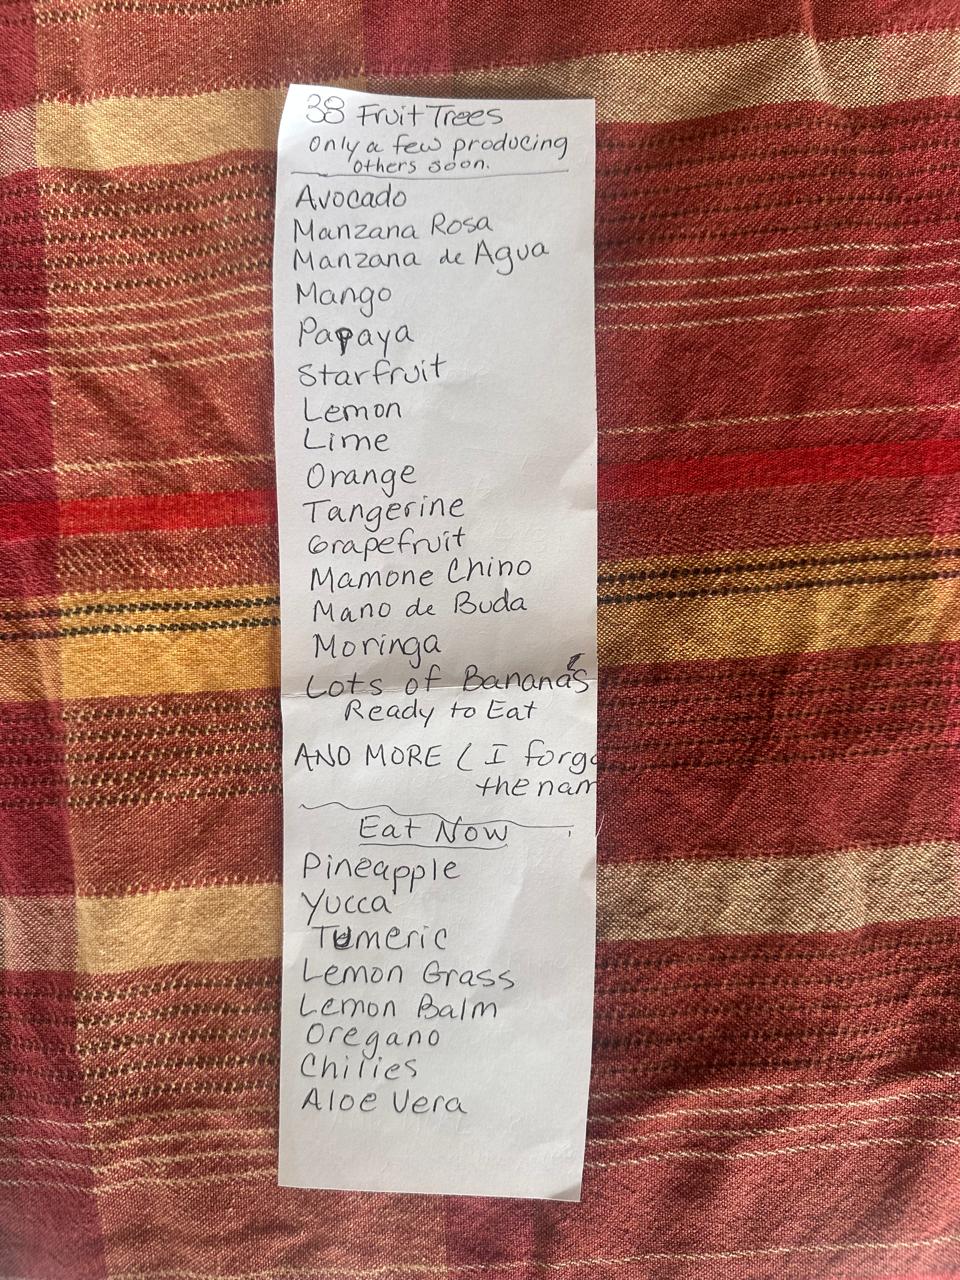 38 Fruit Trees
Only a few producing
others soon.
Avocado
Manzana Rosa
Manzana de Agua
Mango
Papaya
Starfruit
Lemon
Lime
Orange
Tangerine
Grapefruit
Mamone Chino
Mano de Buda
Moringa
Lots of Bananas
Ready to Eat
AND MORE ( I forgo
the nam
Eat Now
Pineapple
Yucca
Tumeric
Lemon Grass
Lemon Balm
Oregano
Chilies
Aloe Vera